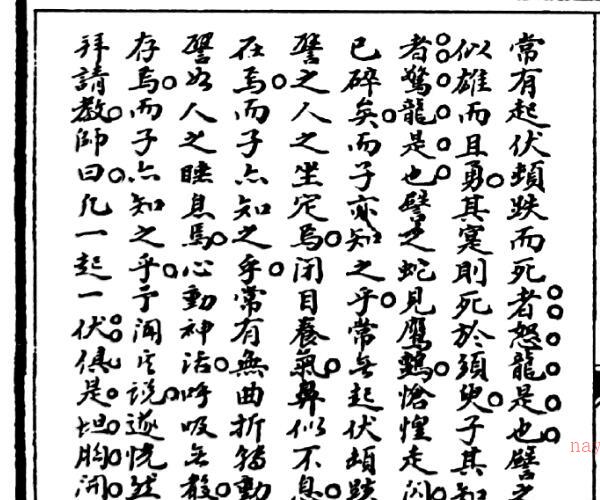 常有起伏頓跌而死者怒龍是也譬之
似雄而且勇其寔則死於須臾子其知
者驚龍是也譬之蛇見鷹鸇愴惶走闪
已碎矣而子亦知之乎常無起伏頓跌
譬之人之坐定焉闭目養氣鼻似不息
在焉而子亦知之乎常有無曲折轉動
譬如人之睡息焉心動神活呼吸無数
存焉而子亦知之乎予闻其说遂恍然
拜請教師曰凡一起一伏俱是坦胸闲
nay